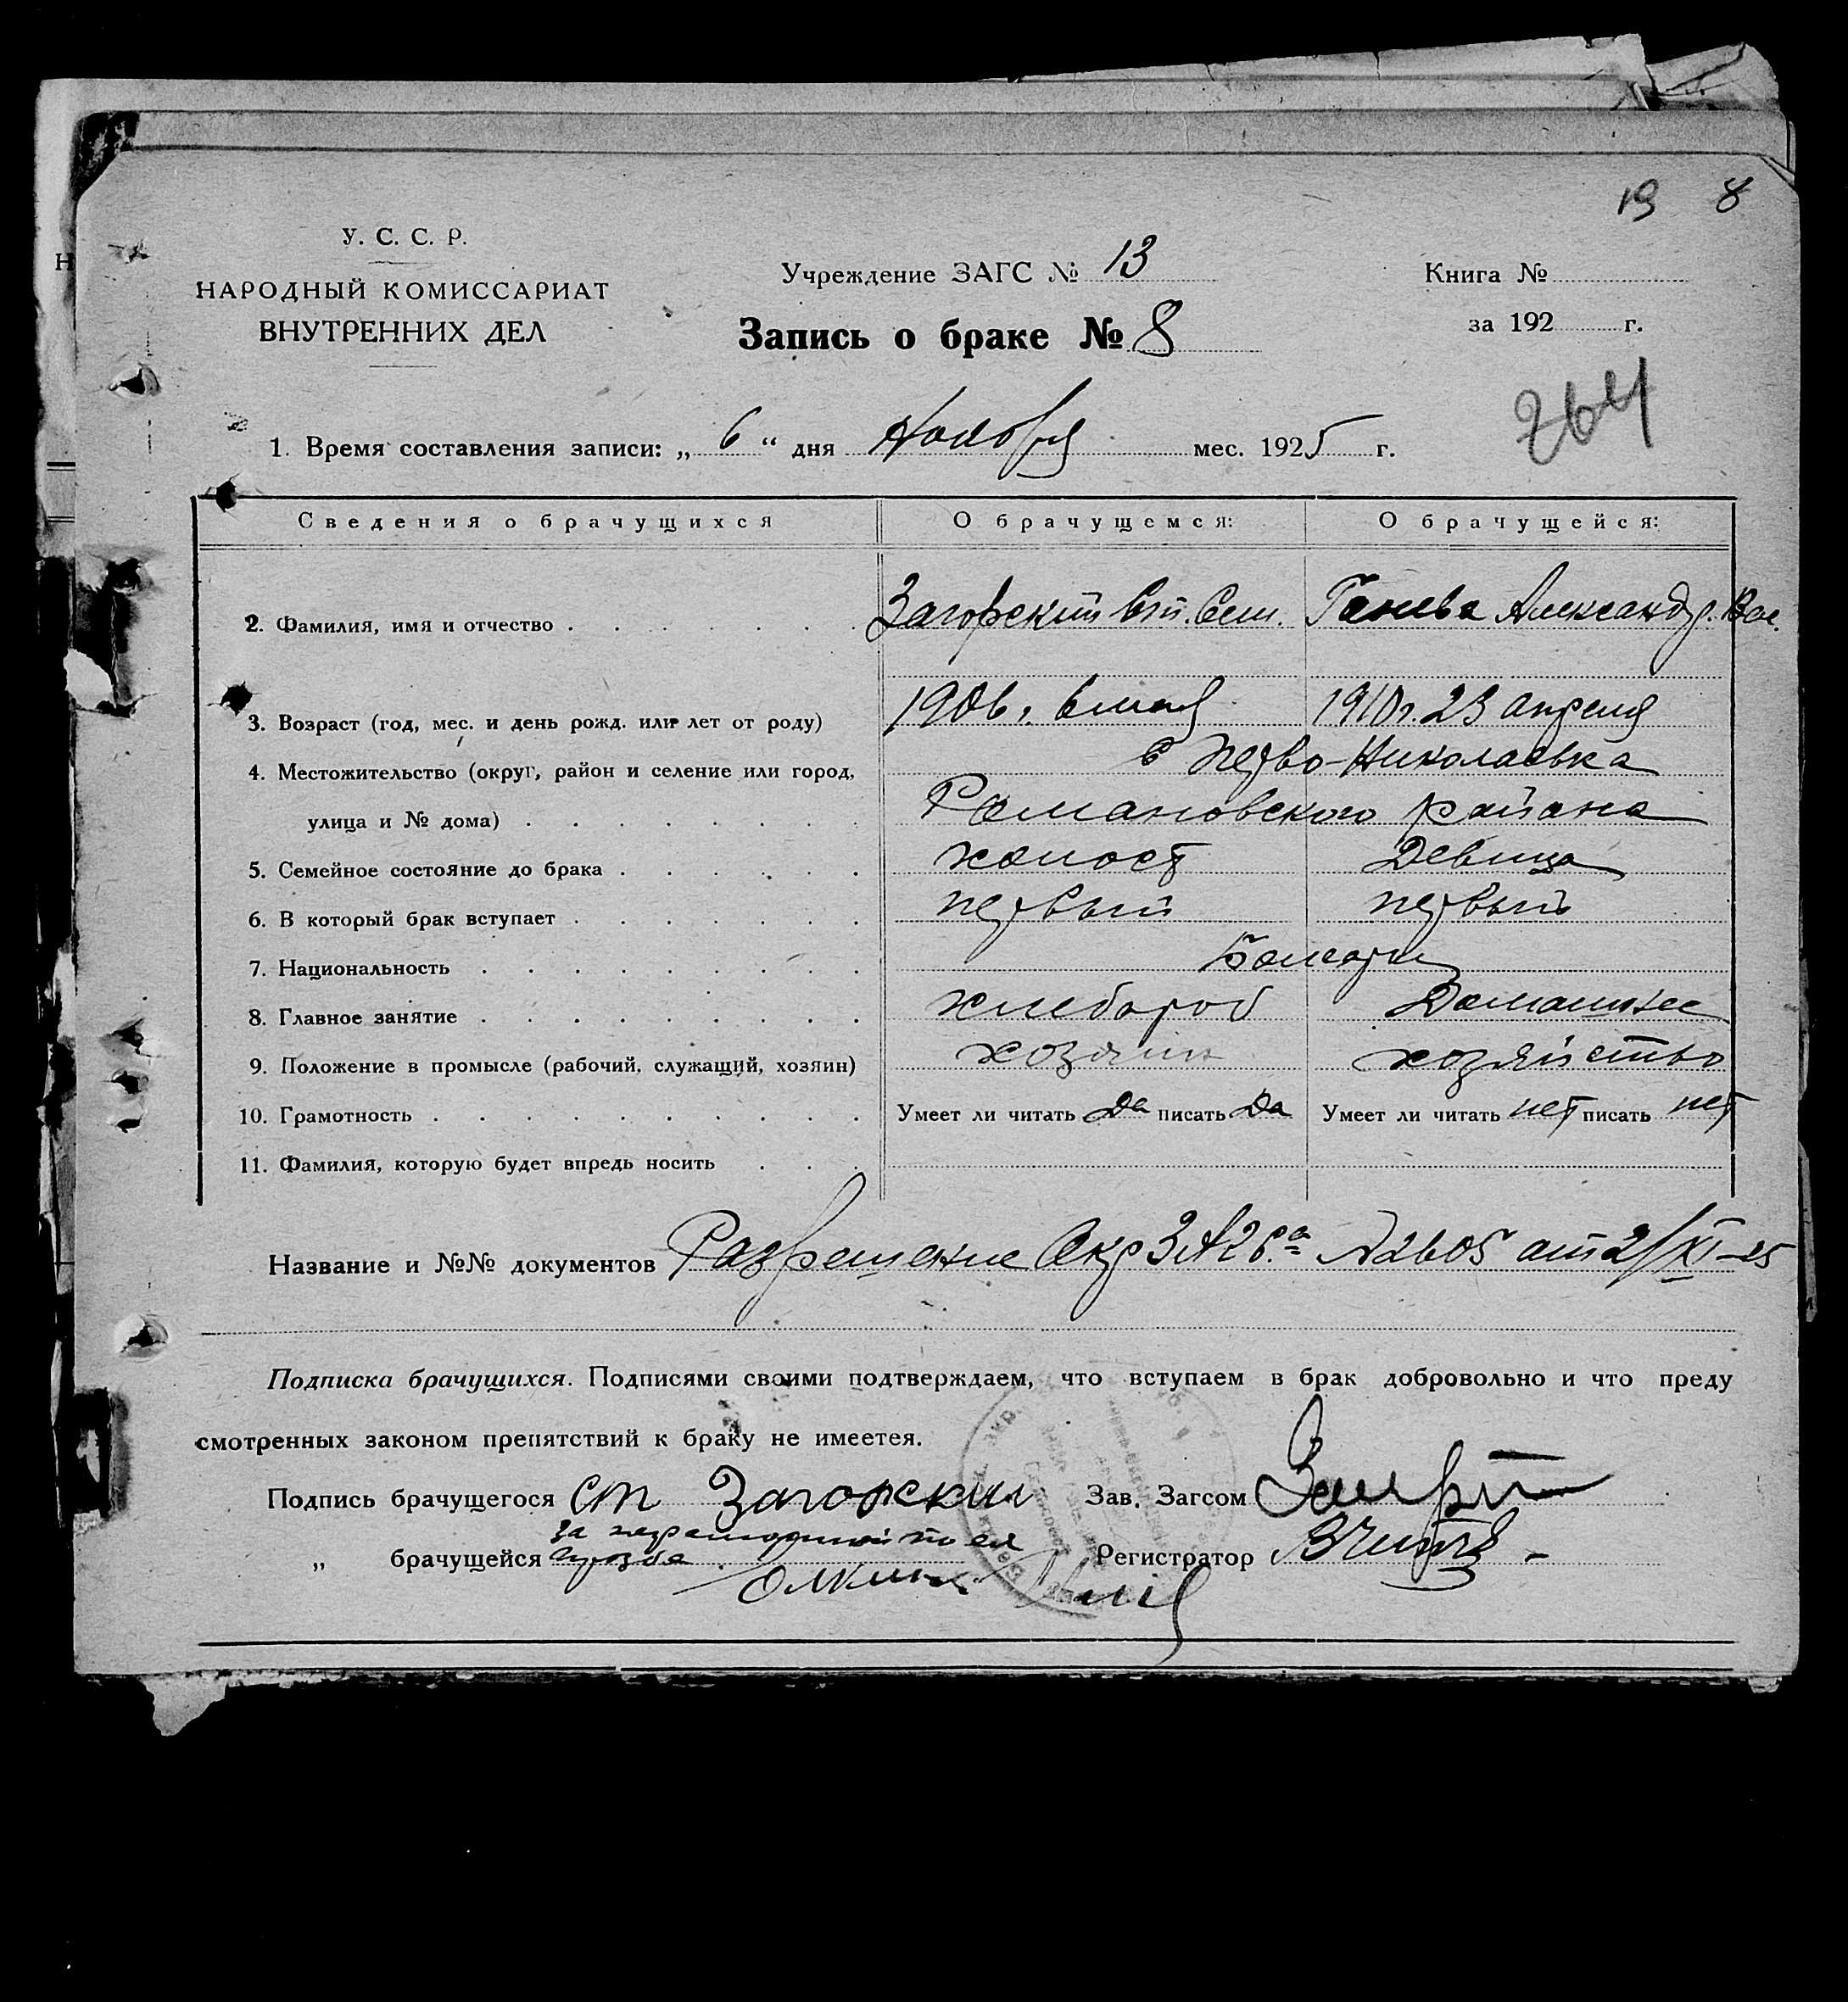 19 8
У. С. С. Р.
НАРОДНЫЙ КОМИССАРИАТ
ВНУТРЕННИХ ДЕЛ
Учреждение ЗАГС № 13
Книга №
за 192 г.
Запись о браке № 8
264
1. Время составления записи: „ 6 “ дня Ноября мес. 1925 г.
Сведения о брачущихся О брачущемся: О брачущейся:
2. Фамилия, имя и отчество Загорский Ст. Сем. Генева Александр. Вас.
3. Возраст (год, мес. и день рожд. или лет от роду) 1906 г. 6 мая 1910 г. 23 апреля
4. Местожительство (округ, район и селение или город, с Перво-Николаевка
улица и № дома) Романовского района
5. Семейное состояние до брака холост Девица
6. В который брак вступает первый первый
7. Национальность Болгары
8. Главное занятие хлебороб Домашнее
9. Положение в промысле (рабочий, служащий, хозяин) хозяин хозяйство
10. Грамотность Умеет ли читать Да писать Да Умеет ли читать нет писать нет
11. Фамилия, которую будет впредь носить
Название и №№ документов Разрешение Окр ЗАГСа №2605 от 2/XI-25
Подписка брачущихся. Подписями своими подтверждаем, что вступаем в брак добровольно и что преду
смотренных законом препятствий к браку не имеетея.
Подпись брачущегося Ст Загорский Зав. Загсом
„ брачущейся за неграмотной по ея Регистратор
просьбе